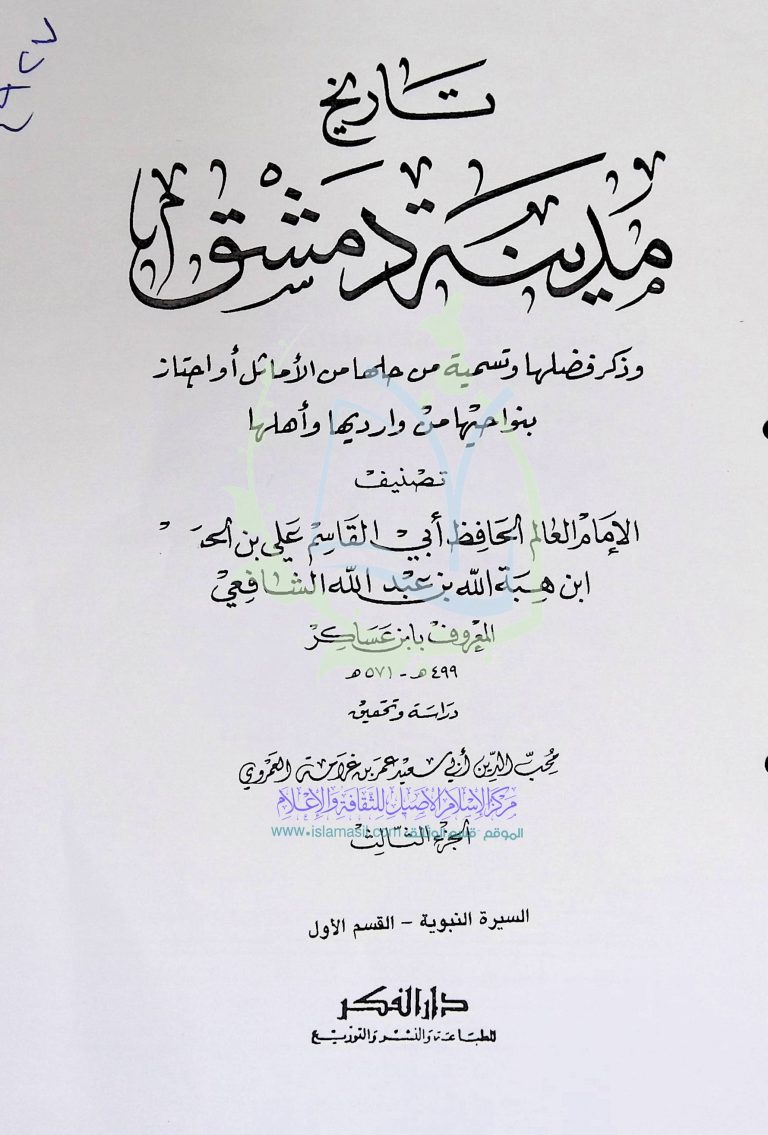 تاريخ
مدينة دمشق
وذكر فضلها وتسمية من حلها من الأماثل أو اجتاز
بنواحيها من وارديها وأهلها
تصنيف
الإمام العالم الحافظ أبي القاسم علي بن الحـ
ابن هبة الله بن عبد الله الشافعي
المعروف بابن عساكر
٤٩٩ هـ - ٥٧١ هـ
دراسة وتحقيق
محب الدين أبي سعيد عمر بن غرامة العمروي
مركز الإسلام الأصيل للثقافة والإعلام
الموقع قسم الوثائق www.islamasil.com
الجزء الثالث
السيرة النبوية - القسم الأول
دار الفكر
للطباعة والنشر والتوزيع